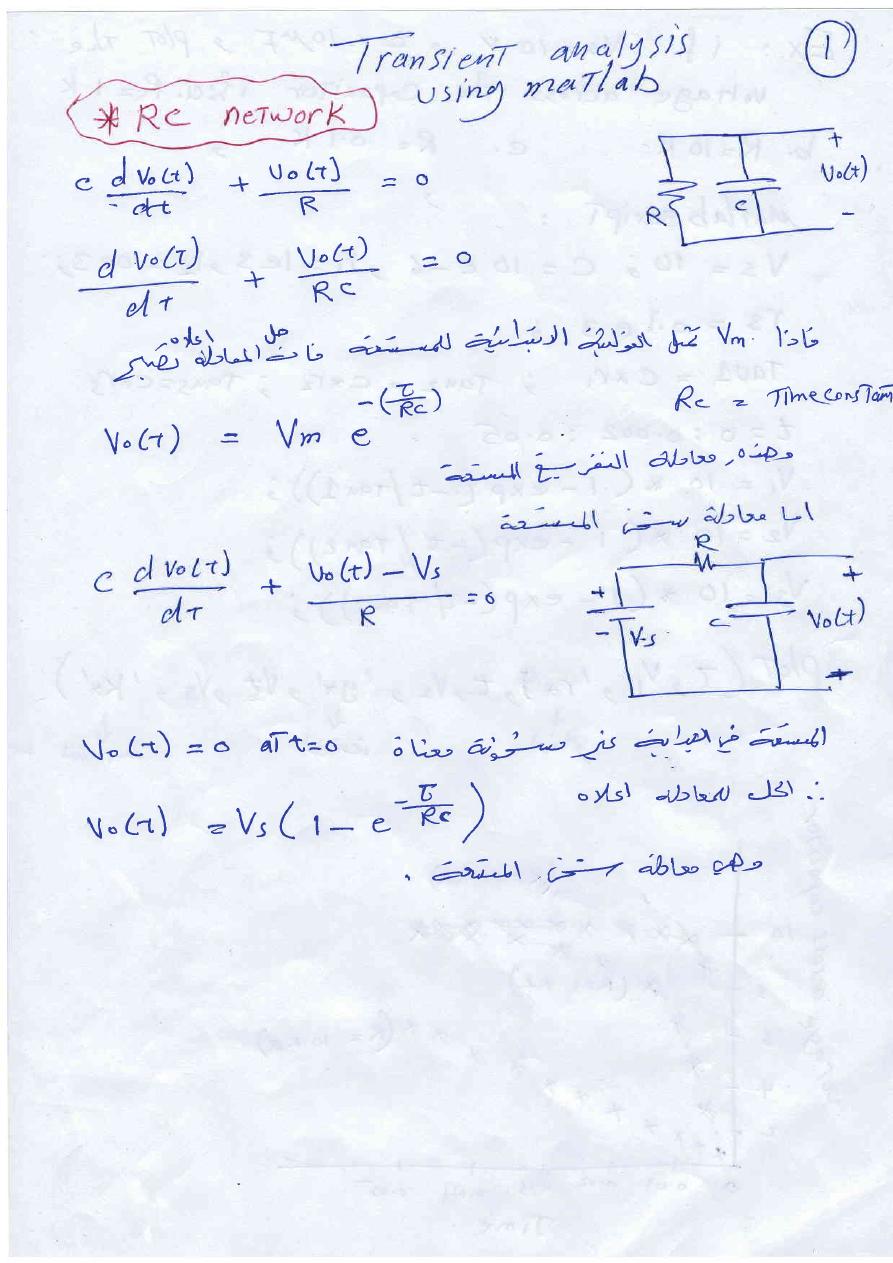 Transient analysis
using matlab
1
* RC network
C d Vo(t)/dt + Vo(t)/R = 0
R C + Vo(t) -
d Vo(t)/dt + Vo(t)/RC = 0
فاذا Vm تمثل الفولتية الابتدائية للمتسعة فان حل المعادلة اعلاه تصبح
Vo(t) = Vm e^-(t/RC)
RC = Time constant
وهذه معادلة التفريغ للمتسعة
اما معادلة شحن المتسعة
C d Vo(t)/dt + Vo(t) - Vs/R = 0
R + - Vs C + Vo(t) +
Vo(t) = 0 at t=0 المتسعة في البداية غير مشحونة معناه
∴ الحل للمعادلة اعلاه
Vo(t) = Vs(1 - e^-t/RC)
وهي معادلة شحن المتسعة .